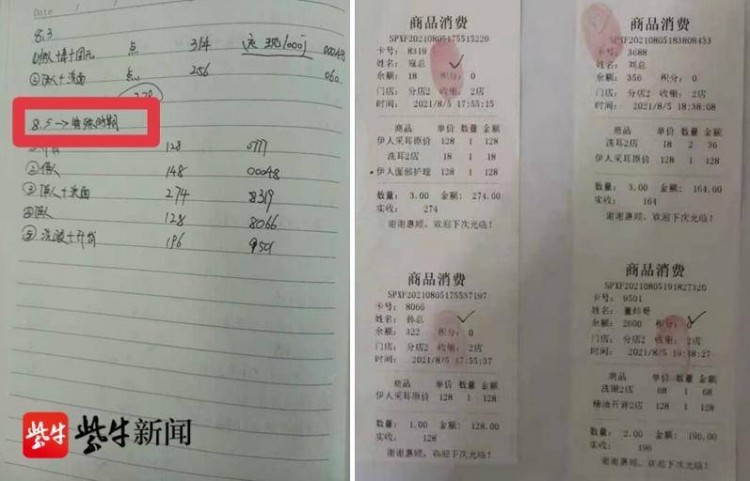 Date
8.3
点 314
00048
点 256
060
8.5→
128 0777
148 00048
③ 274 8319
128 8066
⑤ 196 9501
紫牛 紫牛新闻
商品消费
SPXF20210805175515220
卡号: 8319
姓名: 寇总
余额: 18 积分: 0
门店: 分店2 收银: 2店
时间: 2021/8/5 17:55:15
商品 单价 数量 金额
伊人采耳原价 128 1 128
洗耳2店 18 1 18
伊人面部护理 128 1 128
数量: 3.00 金额: 274.00
实收: 274
谢谢惠顾，欢迎下次光临！
商品消费
SPXF20210805175537197
卡号: 8066
姓名: 孙总
余额: 322 积分: 0
门店: 分店2 收银: 2店
时间: 2021/8/5 17:55:37
商品 单价 数量 金额
伊人采耳原价 128 1 128
数量: 1.00 金额: 128.00
实收: 128
谢谢惠顾，欢迎下次光临！
商品消费
SPXF20210805183808453
卡号: 3688
姓名: 刘总
余额: 356 积分: 0
门店: 分店2 收银: 2店
时间: 2021/8/5 18:38:08
商品 单价 数量 金额
洗耳2店 18 2 36
伊人采耳原价 128 1 128
数量: 3.00 金额: 164.00
实收: 164
谢谢惠顾，欢迎下次光临！
商品消费
SPXF20210805191827320
卡号: 9501
姓名: 董帅哥
余额: 2600 积分:
门店: 分店2 收银: 2店
时间: 2021/8/5 19:38:27
商品 单价 数量 金额
洗头2店 68 1 68
精油开背2店 128 1 128
数量: 2.00 金额: 196.00
实收: 196
谢谢惠顾，欢迎下次光临！